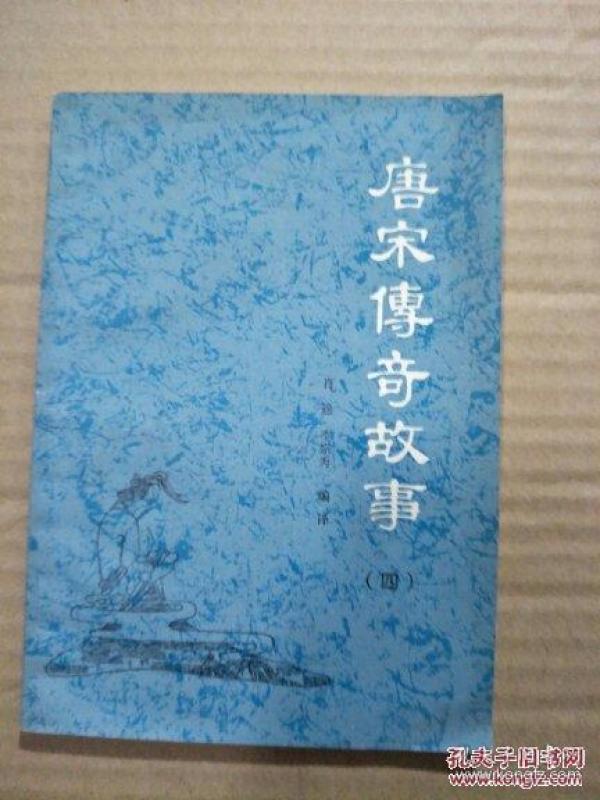 唐宋傳奇故事
(四)
编译
孔夫子旧书网
www.kongfz.com